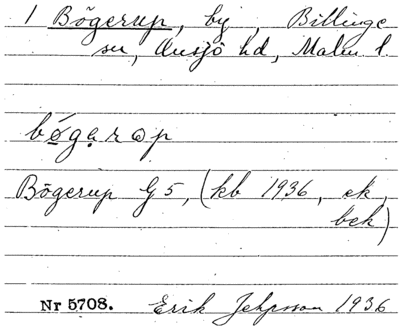 1 Bögerup, by, Billinge
sn, Onsjö hd, Malm l.
bǫ́gąrop
Bögerup G5, (kb 1936, ek,
bek)
Nr 5708. Erik Jeppsson 1936